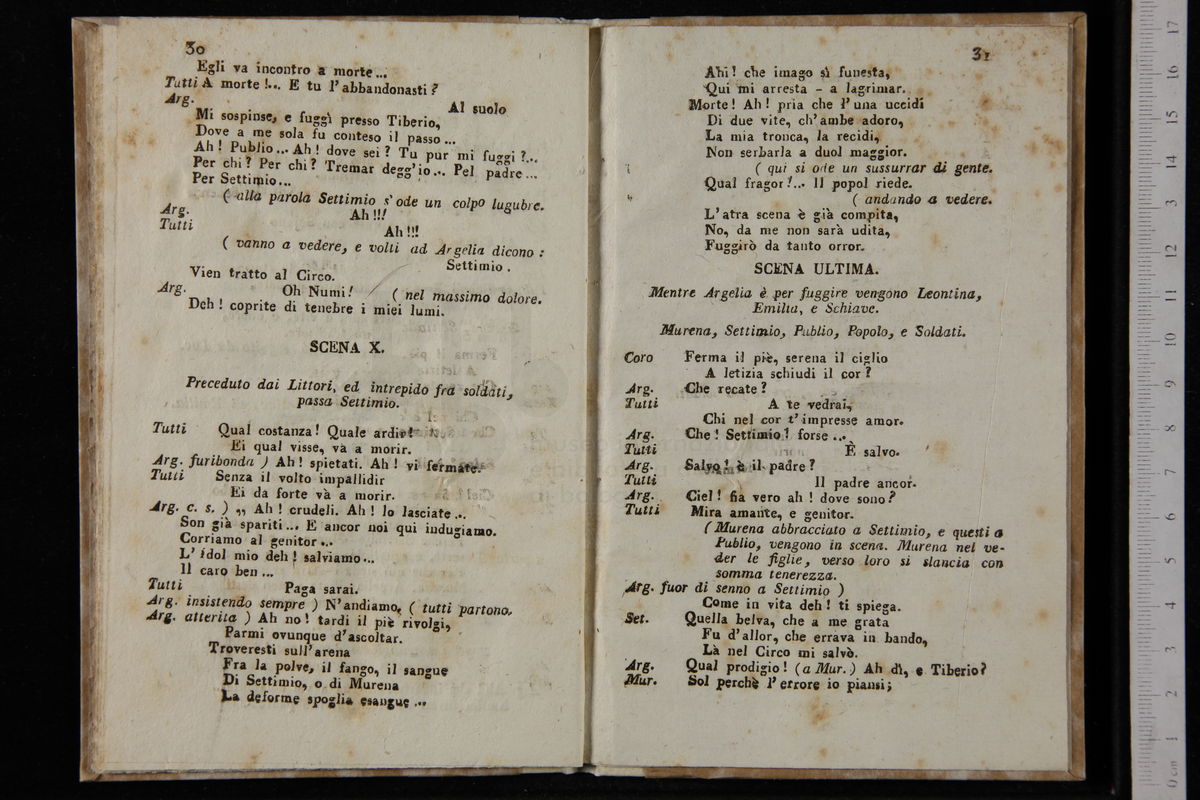 30
Egli va incontro a morte...
Tutti A morte!.. E tu l'abbandonasti?
Arg. Al suolo
Mi sospinse, e fuggì presso Tiberio,
Dove a me sola fu conteso il passo...
Ah! Publio... Ah! dove sei? Tu pur mi fuggi?...
Per chi? Per chi? Tremar degg'io... Pel padre...
Per Settimio...
( alla parola Settimio s'ode un colpo lugubre.
Arg. Ah!!!
Tutti Ah!!!
( vanno a vedere, e volti ad Argelia dicono:
Settimio.
Vien tratto al Circo.
Arg. Oh Numi! ( nel massimo dolore.
Deh! coprite di tenebre i miei lumi.
SCENA X.
Preceduto dai Littori, ed intrepido fra soldati,
passa Settimio.
Tutti Qual costanza! Quale ardir!
Ei qual visse, và a morir.
Arg. furibonda ) Ah! spietati. Ah! vi fermate.
Tutti Senza il volto impallidir
Ei da forte và a morir.
Arg. c. s. ) ,, Ah! crudeli. Ah! lo lasciate...
Son già spariti... E ancor noi qui indugiamo.
Corriamo al genitor...
L'idol mio deh! salviamo...
Il caro ben...
Tutti Paga sarai.
Arg. insistendo sempre ) N'andiamo. ( tutti partono.
Arg. atterita ) Ah no! tardi il piè rivolgi,
Parmi ovunque d'ascoltar.
Troveresti sull'arena
Fra la polve, il fango, il sangue
Di Settimio, o di Murena
La deforme spoglia esangue...
31
Ahi! che imago sì funesta,
Qui mi arresta - a lagrimar.
Morte! Ah! pria che l'una uccidi
Di due vite, ch'ambe adoro,
La mia tronca, la recidi,
Non serbarla a duol maggior.
( qui si ode un sussurrar di gente.
Qual fragor!... Il popol riede.
( andando a vedere.
L'atra scena è già compita,
No, da me non sarà udita,
Fuggirò da tanto orror.
SCENA ULTIMA.
Mentre Argelia è per fuggire vengono Leontina,
Emilia, e Schiave.
Murena, Settimio, Publio, Popolo, e Soldati.
Coro Ferma il piè, serena il ciglio
A letizia schiudi il cor?
Arg. Che recate?
Tutti A te vedrai,
Chi nel cor t'impresse amor.
Arg. Che! Settimio! forse...
Tutti E salvo.
Arg. Salvo! è il padre?
Tutti Il padre ancor.
Arg. Ciel! fia vero ah! dove sono?
Tutti Mira amante, e genitor.
( Murena abbracciato a Settimio, e questi a
Publio, vengono in scena. Murena nel ve-
der le figlie, verso loro si slancia con
somma tenerezza.
Arg. fuor di senno a Settimio )
Come in vita deh! ti spiega.
Set. Quella belva, che a me grata
Fu d'allor, che errava in bando,
Là nel Circo mi salvò.
Arg. Qual prodigio! (a Mur.) Ah dì, e Tiberio?
Mur. Sol perchè l'errore io piansi;
17
16
15
14
13
12
11
10
9
8
7
6
5
4
3
2
1
0 cm